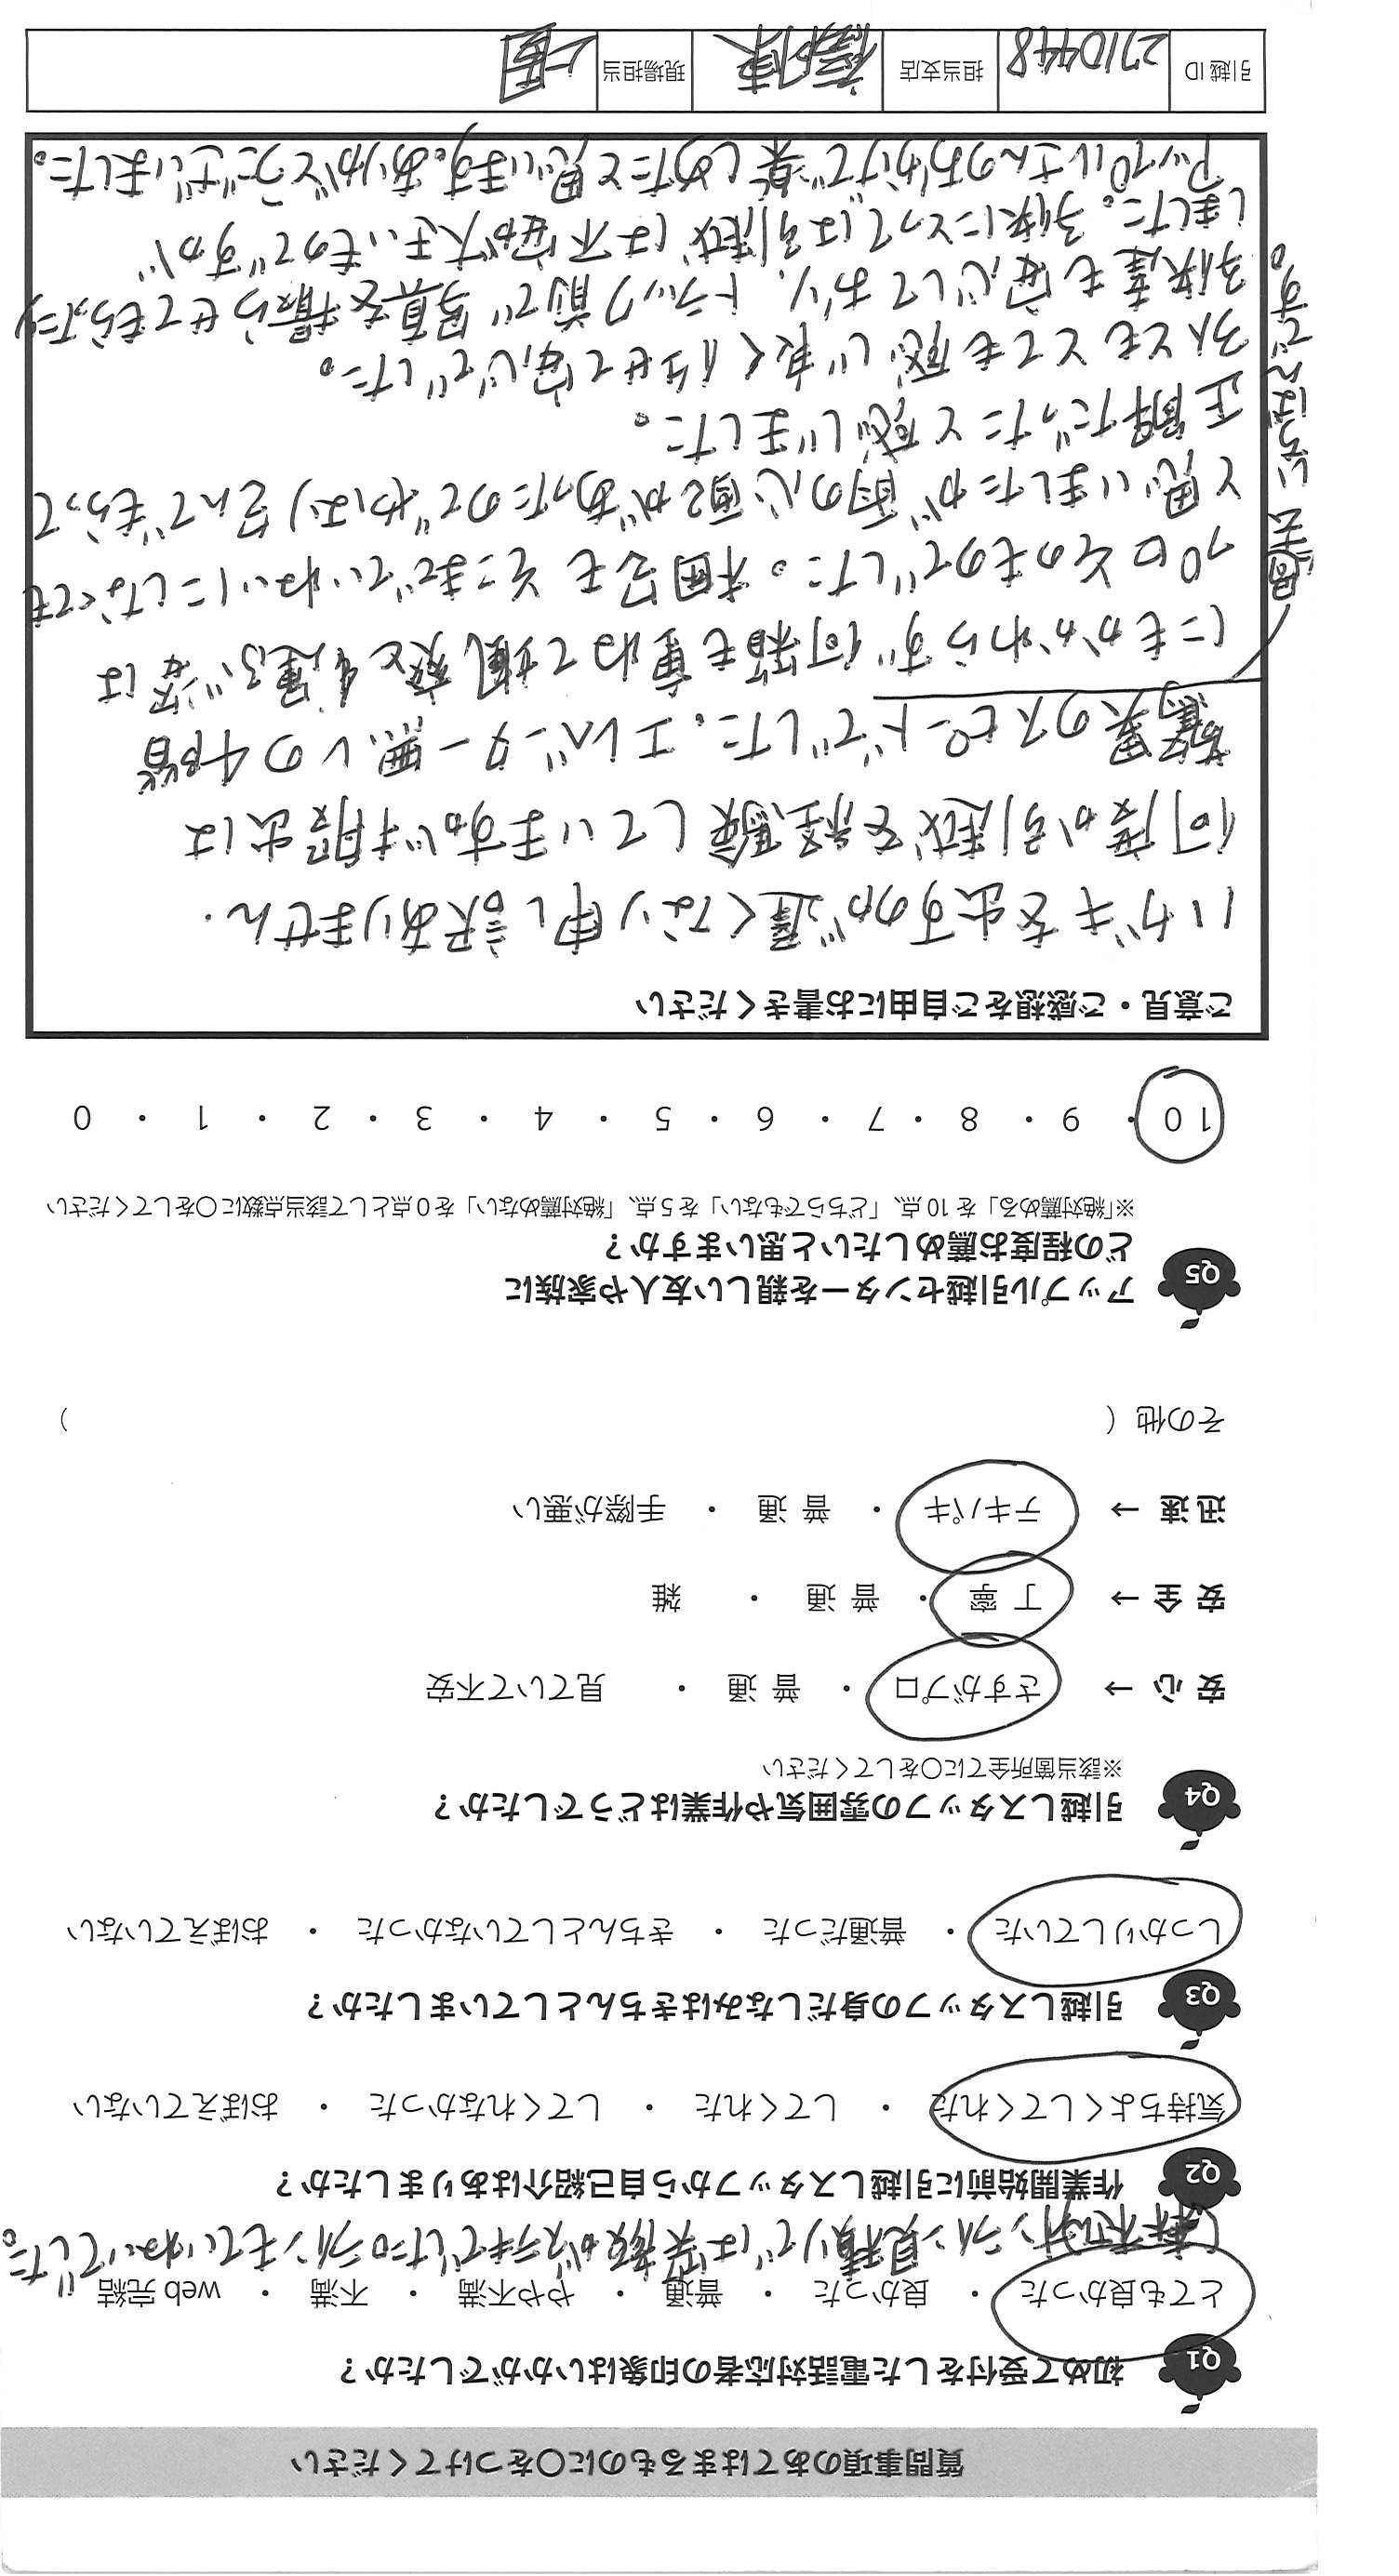 質問事項のあてはまるものに〇をつけてください
Q1 初めて受付をした電話対応者の印象はいかがでしたか?
とても良かった ・ 良かった ・ 普通 ・ やや不満 ・ 不満 ・ web 完結
オンライン見積りでは笑顔がステキでしたロラインもていねいでした。
Q2 作業開始前に引越しスタッフから自己紹介はありましたか?
気持ちよくしてくれた ・ してくれた ・ してくれなかった ・ おぼえていない
Q3 引越しスタッフの身だしなみはきちんとしていましたか?
しっかりしていた ・ 普通だった ・ きちんとしていなかった ・ おぼえていない
Q4 引越しスタッフの雰囲気や作業はどうでしたか?
※該当箇所全てに〇をしてください
安 心 → さすがプロ ・ 普 通 ・ 見ていて不安
安 全 → 丁 寧 ・ 普 通 ・ 雑
迅 速 → テキパキ ・ 普 通 ・ 手際が悪い
その他 ( )
Q5 アップル引越センターを親しい友人や家族に
どの程度お薦めしたいと思いますか?
※「絶対薦める」を 10 点、「どちらでもない」を 5 点、「絶対薦めない」を 0 点として該当点数に〇をしてください
10 ・ 9 ・ 8 ・ 7 ・ 6 ・ 5 ・ 4 ・ 3 ・ 2 ・ 1 ・ 0
ご意見・ご感想をご自由にお書きください
ハガキを出すのが遅くなり申し訳ありません.
何度か引越を経験していますが搬出は
驚異のスピードでした。エレベーター無しの4階
にもかかわらず何箱も重ねて颯爽と運ぶ姿は
プロそのものでした。梱包もそこまでていねいにしなくても
と思いましたが雨の心配があったのでやはり包んでもらって
正解だったと感じました。
3人ともとても感じ良く任せて安心でした。
子供達も安心しており、トラック前で写真を撮らせてもらったり
しました。子供にとっては引越は不安が大きいものですが
アップルさんのおかげで楽しめたと思います。ありがとうございました。
過去いちばんです。
引越 ID 2710448 担当支店 現場担当